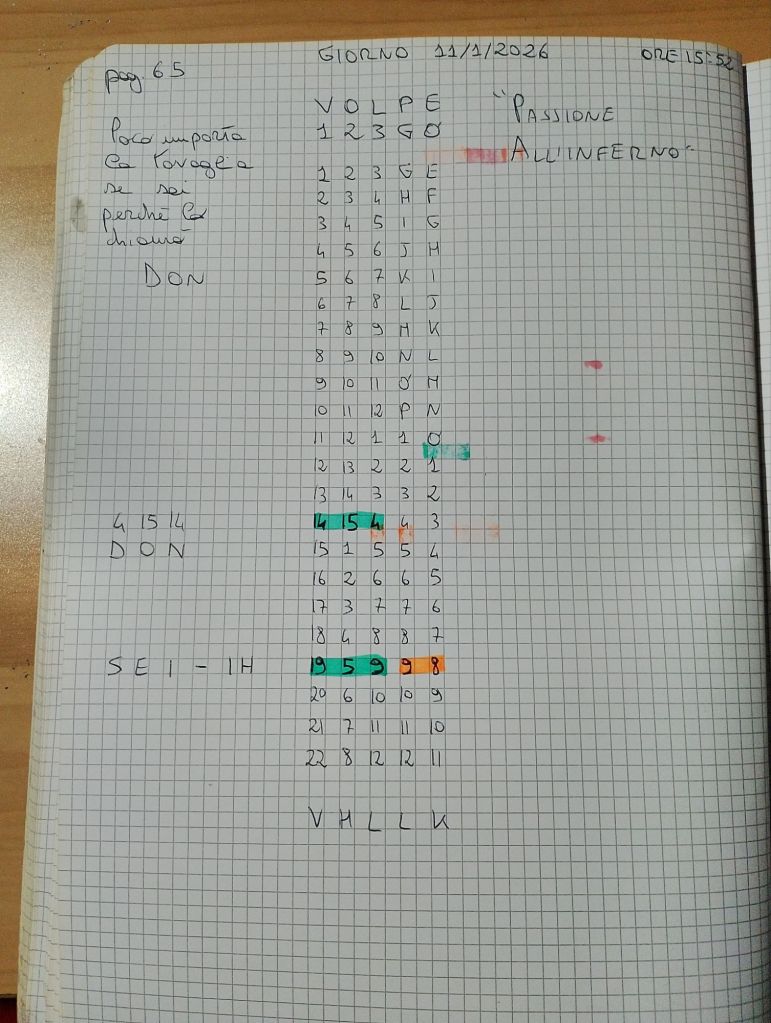 GIORNO 11/1/2026 ORE 15:52
pag. 65
V O L P E "PASSIONE
Poco importa 1 2 3 G O
ALL'INFERNO"
la tovaglia 1 2 3 G E
se sei 2 3 4 H F
perché la 3 4 5 I G
4 5 6 J H
DON 5 6 7 K I
6 7 8 L J
7 8 9 M K
8 9 10 N L
9 10 11 O M
10 11 12 P N
11 12 1 1 O
12 13 2 2 1
13 14 3 3 2
4 15 14 14 15 4 4 3
D O N 15 1 5 5 4
16 2 6 6 5
17 3 7 7 6
18 4 8 8 7
S E I - I H 19 5 9 9 8
20 6 10 10 9
21 7 11 11 10
22 8 12 12 11
V H L L K